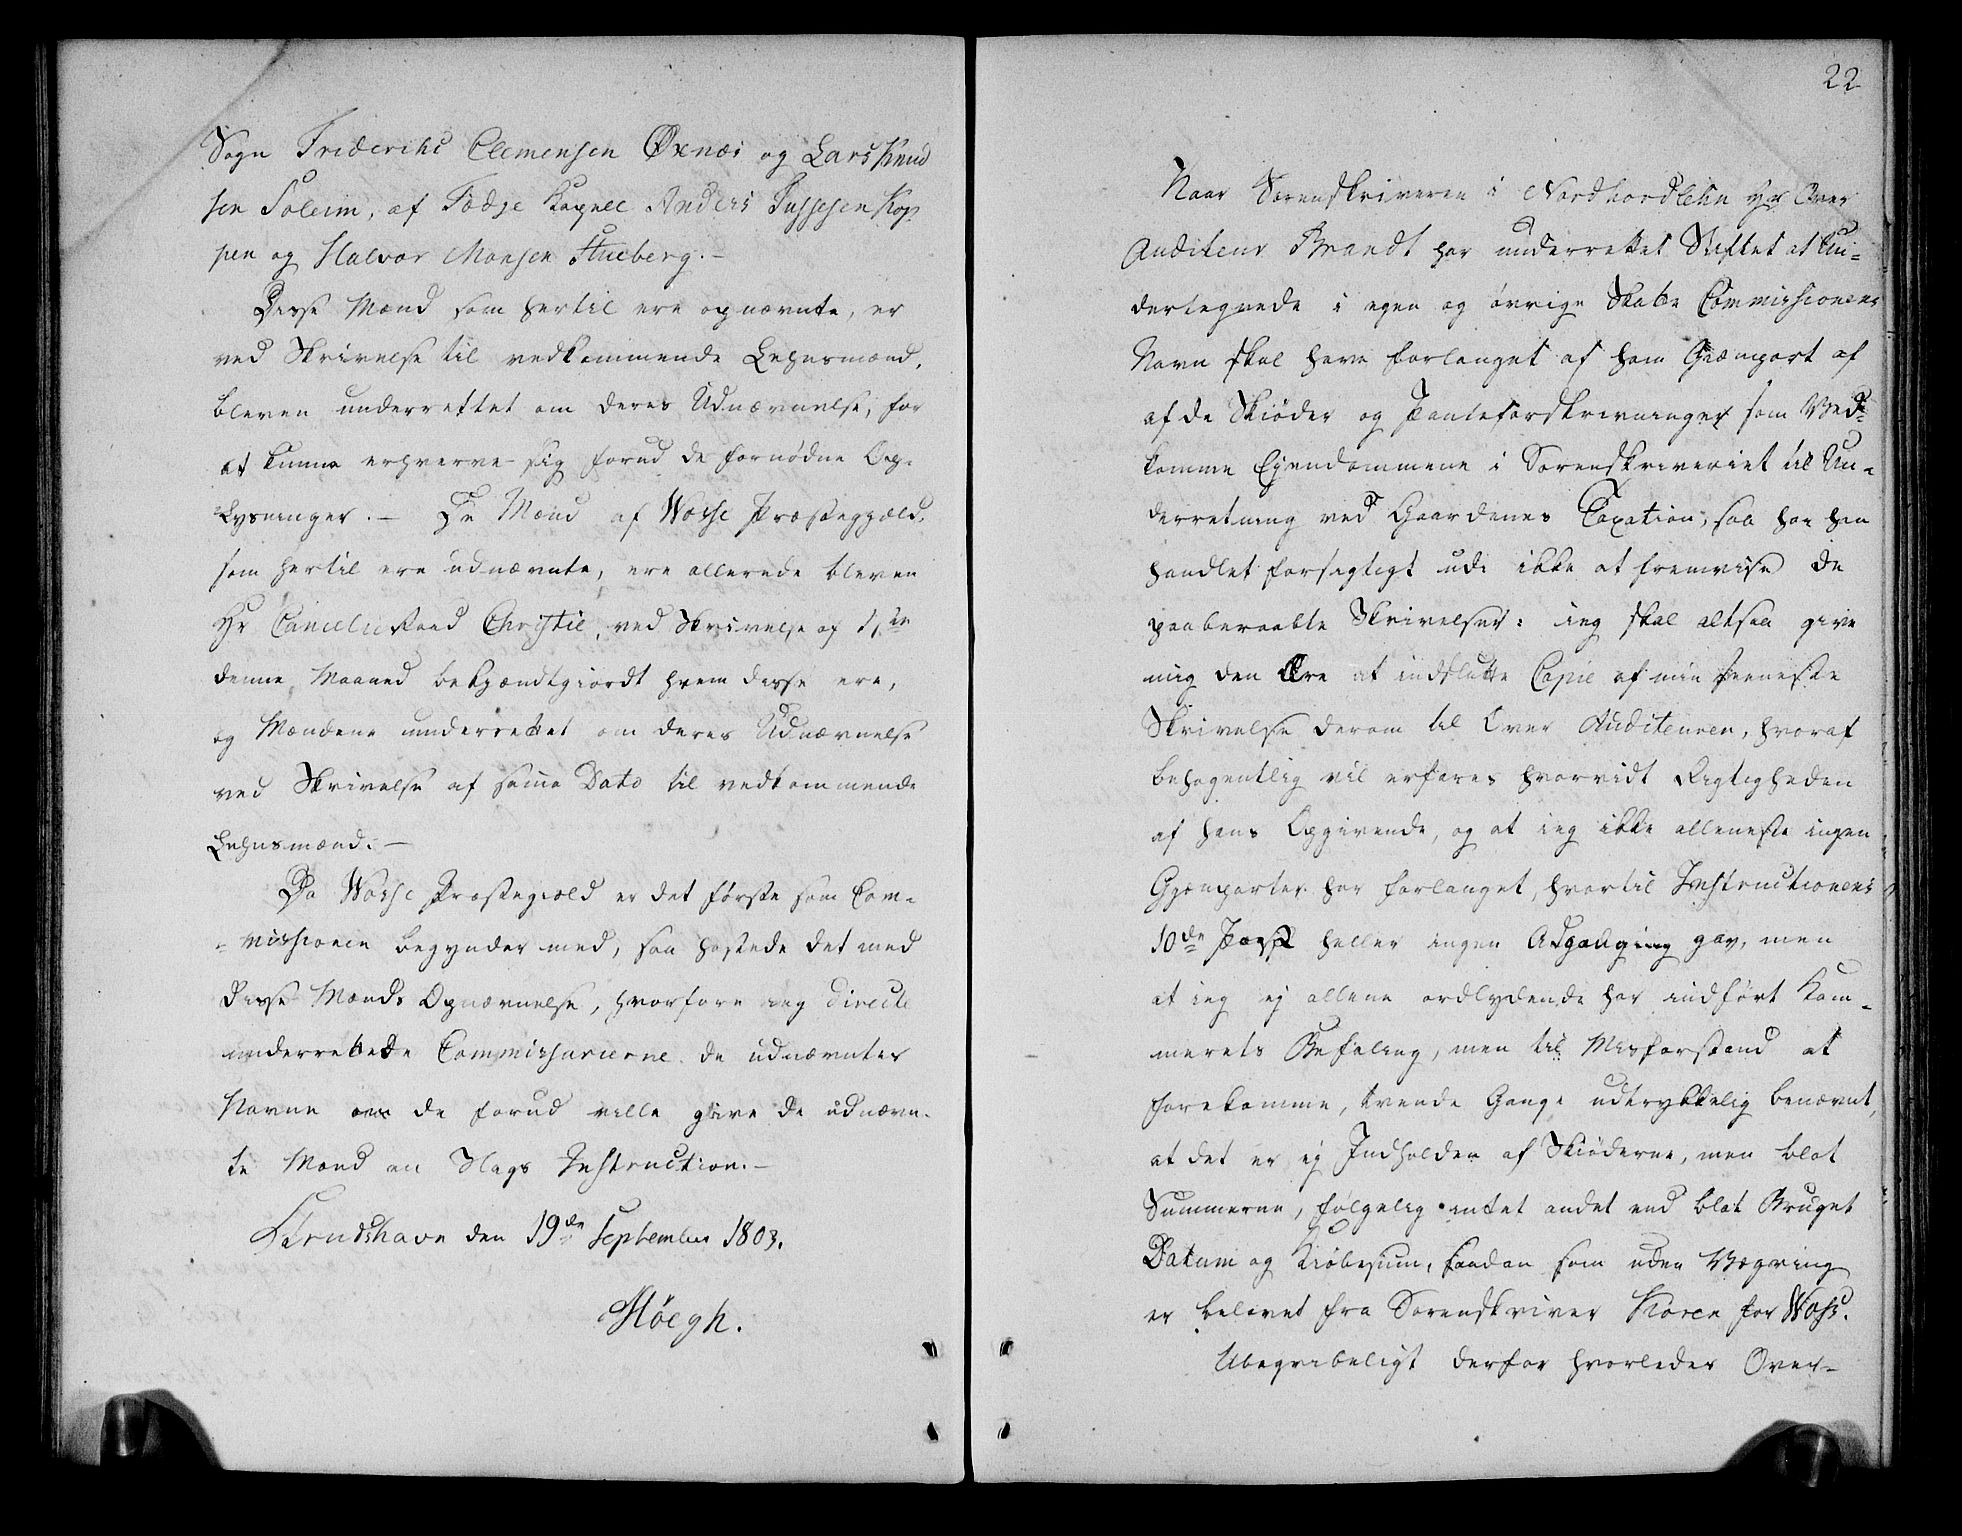 Sogn Friderihc Clemensen Øxnæs og Lars Knud
sen Soleim, af Fødje Kapnel Anders Tussesen Kop
pen og Halvor Monsen Stueberg. –
Disse Mænd som hertil ere opnævnte, er
ved Skrivelse til vedkommende Lehnsmænd,
bleven underrettet om deres Udnævnelse, for
at kunne erhverve sig forud de fornødne Op-
lysninger. – De Mænd af Wosse Præstegjæld,
som hertil ere udnævnte, ere allerede bleven
Hr Cancelieraad Christie, ved Skrivelse af
denne Maaned bekjændtgiordt hvem disse ere,
og Mændene underrettet om deres Udnævnelse
ved Skrivelse af samme Dato til vedkommende
Lehnsmænd. –
Da Wosse Præstegield er det første som Com-
missionen begynder med, saa hastede det med
disse Mænds Opnævnelse, hvorfore ieg directe
underrettede Commissarierne de udnævntes
Navne om de forud ville give de udnævn-
te Mænd en Slags Instruction. –
Strudshavn den 19de September 1803.
Høegh.
22
Naar Sorenskriveren i Nordhordlehn Hr Over
Auditeur Brandt har underrettet Stiftet at Un-
dertegnede i egen og øvrige Skatte Commissionens
Navn skal have forlanget af ham Giænpart af
af de Skiøder og Panteforskrivninger som Ved-
komme Ejendommene i Sorenskriveriet til Un-
derretning ved Gaardenes Taxation, saa har han
handlet forsigtigt udi ikke at fremvise de
paaberaabte Skrivelser: ieg skal altsaa give
mig den Ære at indslutte Copie af min seeneste
Skrivelse derom til Over Auditeuren, hvoraf
behagentlig vil erfares hvorvidt Rigtigheden
af hans Opgivende, og at ieg ikke alleneste ingen
Gjenparter har forlanget, hvortil Instructionens
10de Post heller ingen Adgang gav, men
at ieg ej allene ordlydende har indført Kam-
merets Befaling, men til Misforstand at
forekomme, tvende Gange udtrykkelig benævnt,
at det er ej Indholden af Skiøderne, men blot
Summerne, følgelig intet andet end blot Bruget
Datum og Kiøbesum, saadan som uden Vægring
er belevet fra Sorenskriver Koren for Woss.
Ubegribeligt derfor hvorledes Over-